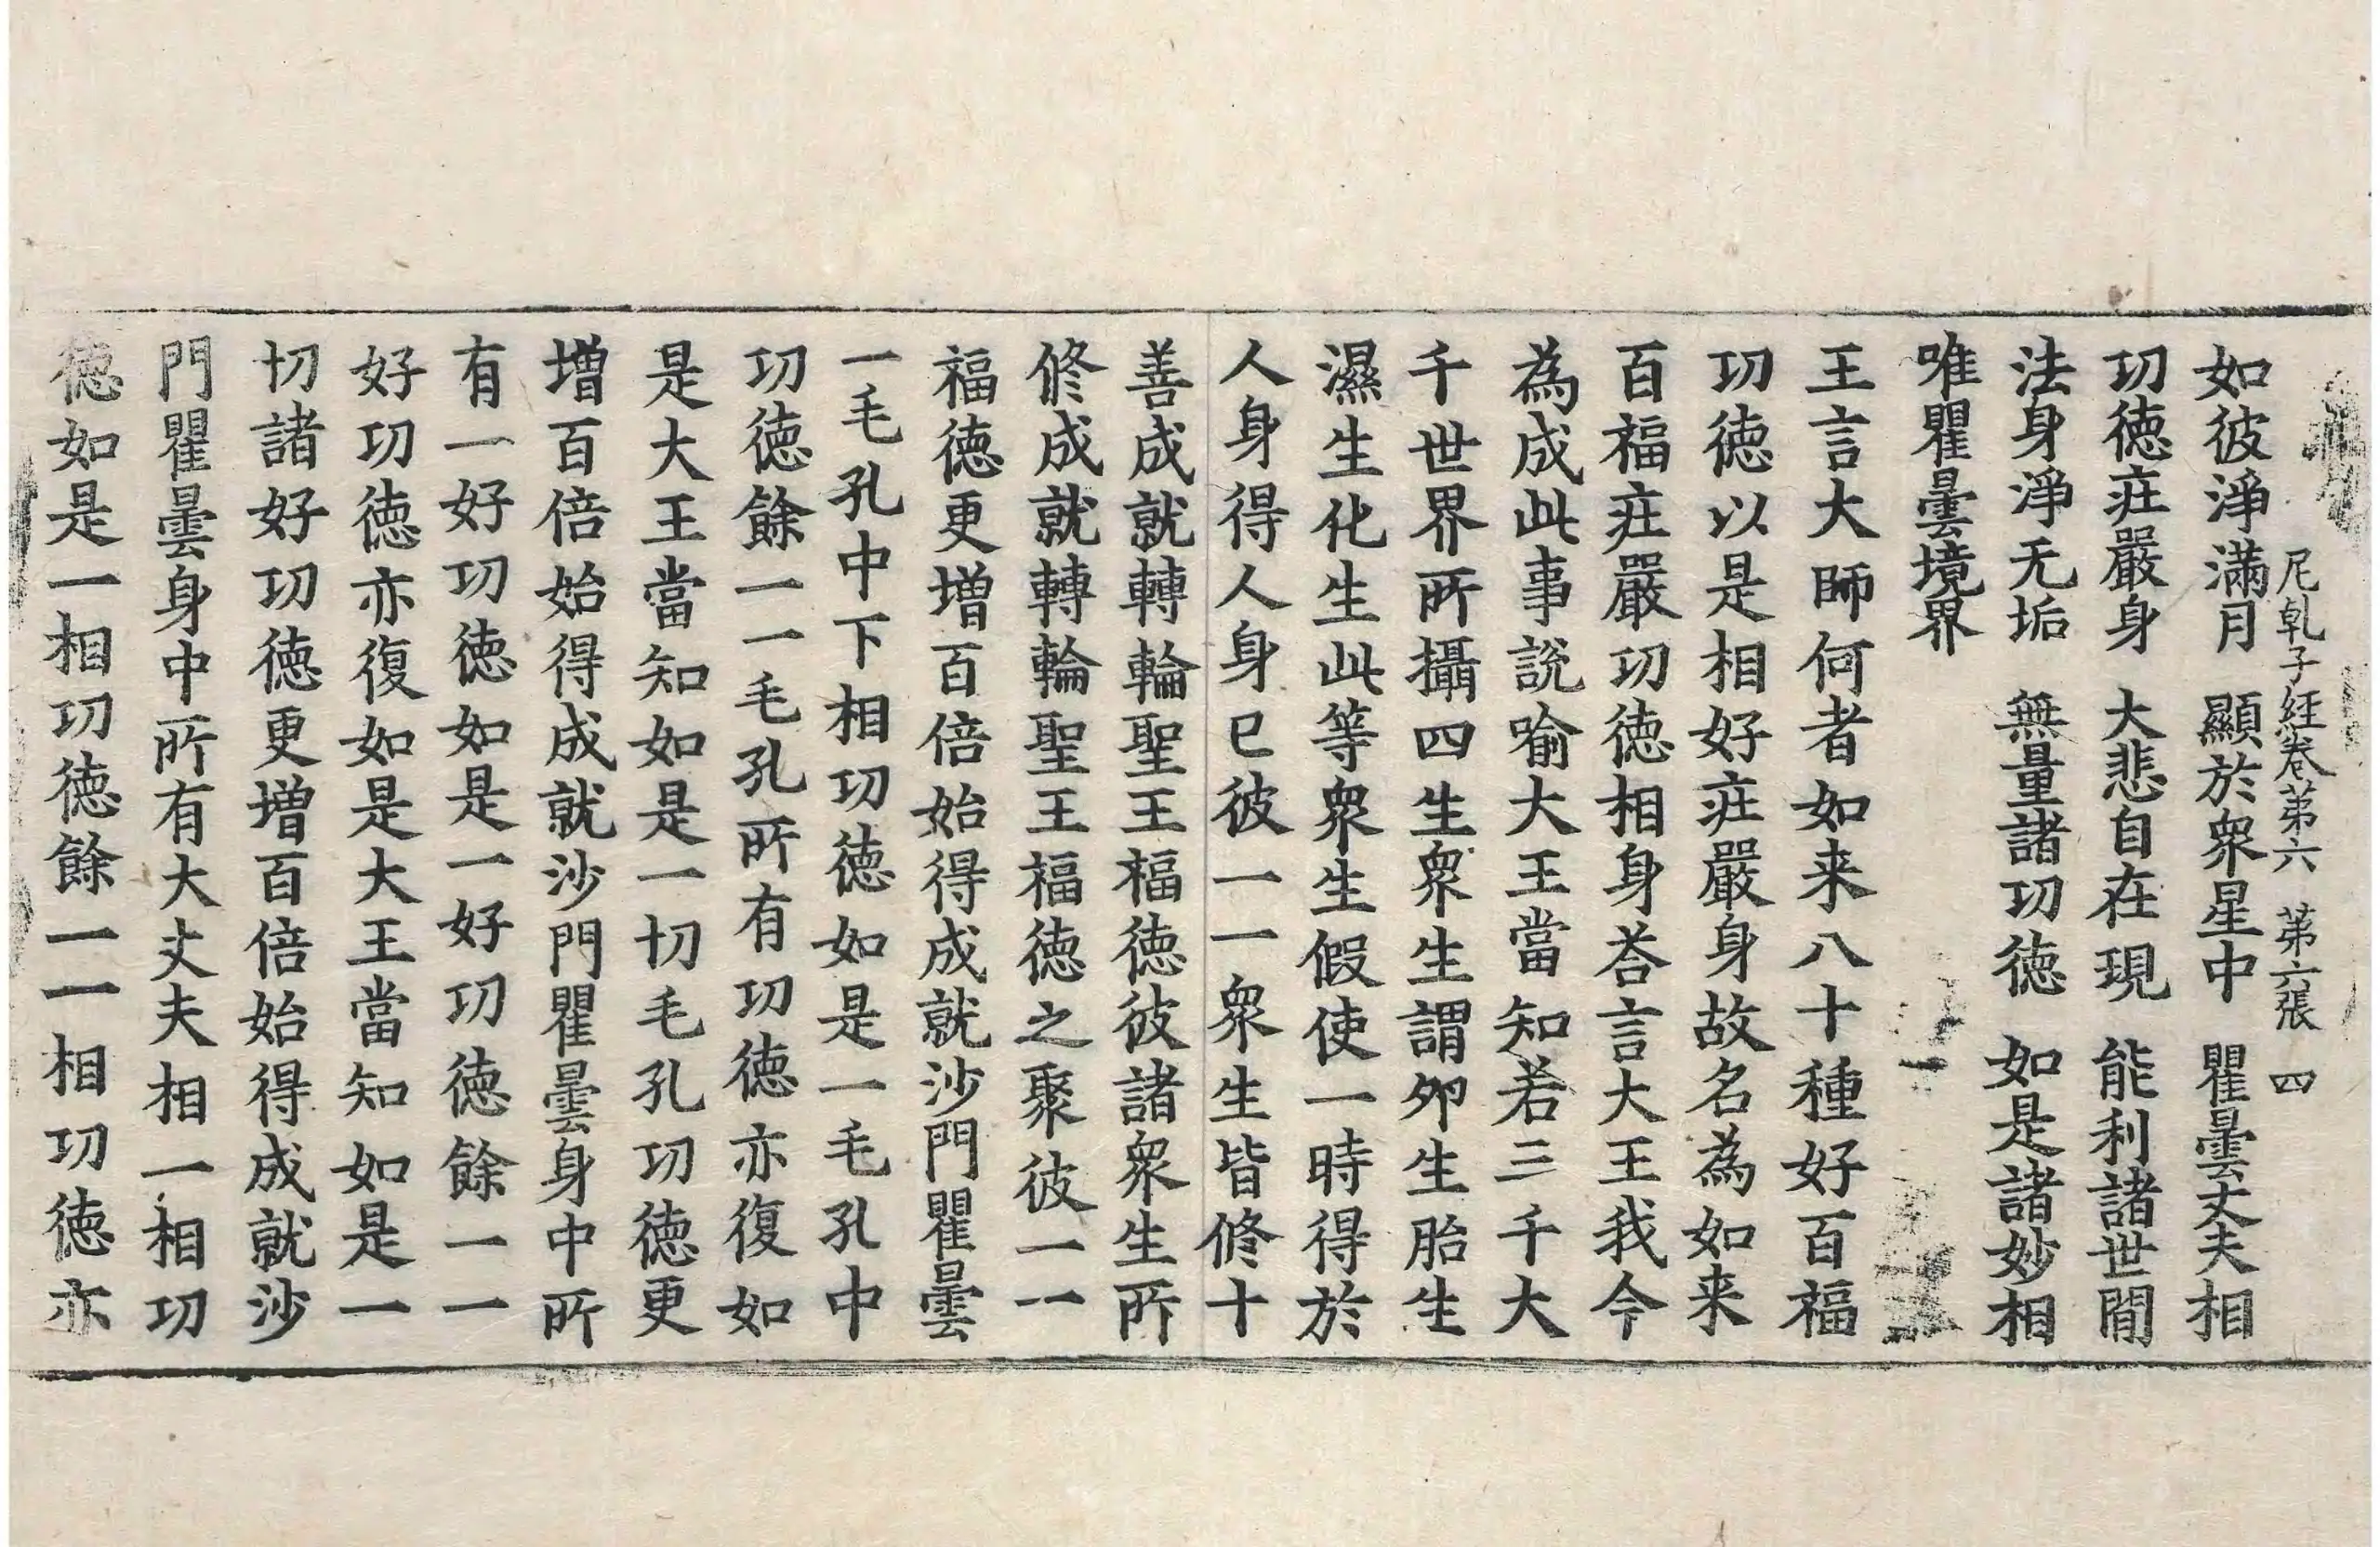 尼乹子経卷第六　第六張　四
如彼淨滿月　顯於衆星中　瞿曇丈夫相
功徳莊嚴身　大悲自在現　能利諸世閒
法身淨无垢　無量諸功徳　如是諸妙相
唯瞿曇境界
王言大師何者如来八十種好百福
功徳以是相好莊嚴身故名為如来
百福莊嚴功徳相身荅言大王我今
為成此事說喻大王當知若三千大
千世界所攝四生衆生謂夘生胎生
濕生化生此等衆生假使一時得於
人身得人身已彼一一衆生皆修十
善成就轉輪聖王福徳彼諸衆生所
修成就轉輪聖王福徳之聚彼一一
福徳更增百倍始得成就沙門瞿曇
一毛孔中下相功徳如是一毛孔中
功徳餘一一毛孔所有功徳亦復如
是大王當知如是一切毛孔功徳更
增百倍始得成就沙門瞿曇身中所
有一好功徳如是一好功徳餘一一
好功徳亦復如是大王當知如是一
切諸好功徳更增百倍始得成就沙
門瞿曇身中所有大丈夫相一相功
徳如是一相功徳餘一一相功徳亦